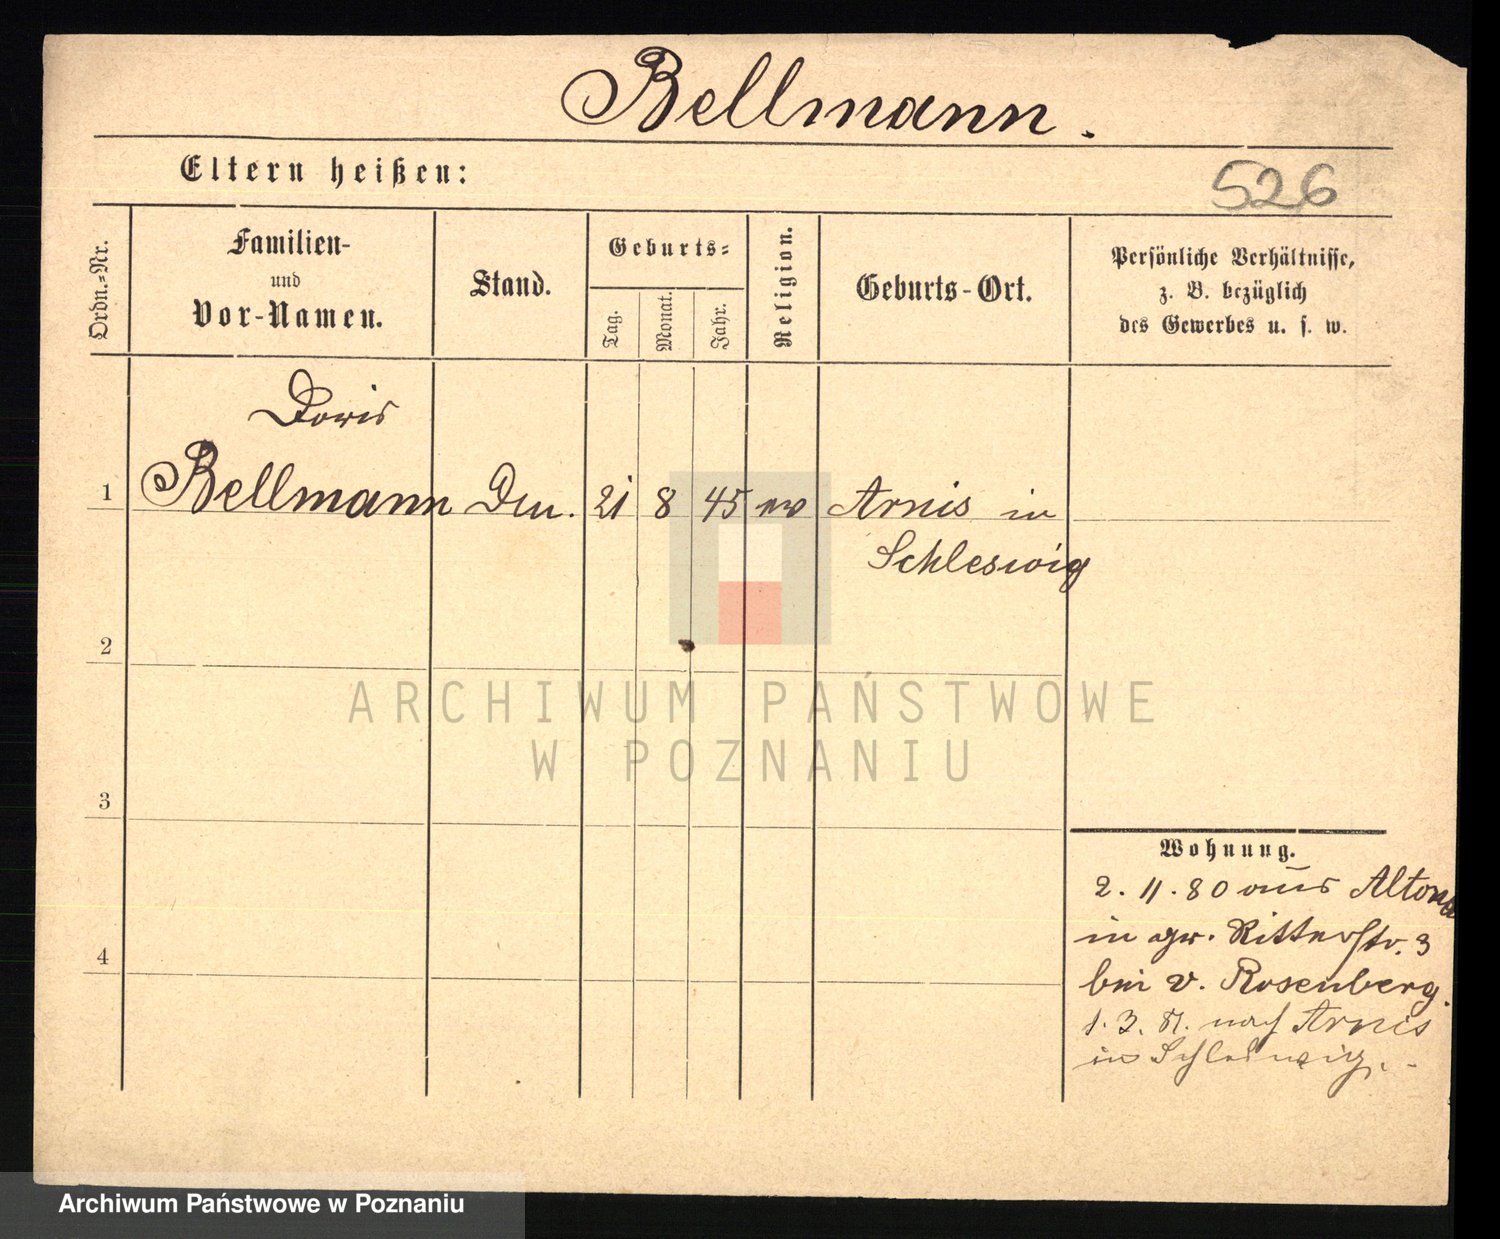 Bellmann.
Eltern heißen:
526
Ordn.-Nr.
Familien-
und
Vor-Namen.
Stand.
Geburts-
Tag.
Monat.
Jahr.
Religion.
Geburts-Ort.
Persönliche Verhältnisse,
z. B. bezüglich
des Gewerbes u. s. w.
Doris
1 Bellmann 21 8 45 ev Arnis in
Schleswig
2
3
4
ARCHIWUM PAŃSTWOWE
W POZNANIU
Wohnung.
2. 11. 80 aus Altona
in gr. Ritterstr. 3
bei v. Rosenberg.
1. 3. 81. nach Arnis
in Schleswig.
Archiwum Państwowe w Poznaniu